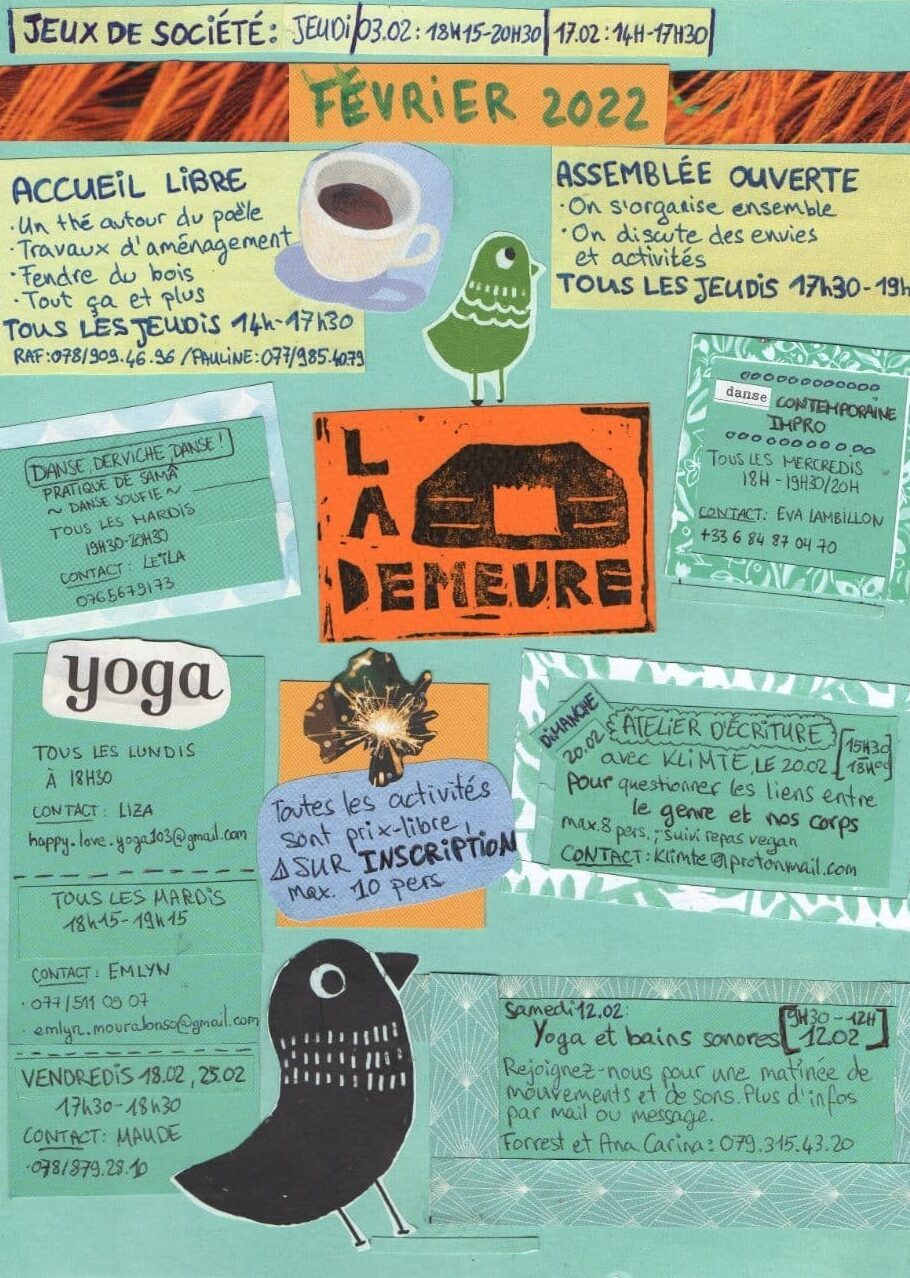 JEUX DE SOCIÉTÉ: JEUDI/03.02: 18H15-20H30 | 17.02: 14H-17H30
FÉVRIER 2022
ACCUEIL LIBRE
· Un thé autour du poêle
· Travaux d'aménagement
· Fendre du bois
· Tout ça et plus
TOUS LES JEUDIS 14h-17h30
RAF: 078/909.46.96 / PAULINE: 077/985.40.79
ASSEMBLÉE OUVERTE
· On s'organise ensemble
· On discute des envies
et activités
TOUS LES JEUDIS 17h30-19h
DANSE, DERVICHE, DANSE!
PRATIQUE DE SAMÂ
~ DANSE SOUFIE ~
TOUS LES MARDIS
19H30-20H30
CONTACT: LEÏLA
0765679173
LA
DEMEURE
danse CONTEMPORAINE
IMPRO
TOUS LES MERCREDIS
18H - 19H30/20H
CONTACT: EVA LAMBILLON
+33 6 84 87 04 70
yoga
TOUS LES LUNDIS
À 18H30
CONTACT: LIZA
happy.love.yoga103@gmail.com
TOUS LES MARDIS
18H15-19H15
CONTACT: EMLYN
· 077/511 09 07
· emlyn.mouralonso@gmail.com
VENDREDIS 18.02, 25.02
17h30-18H30
CONTACT: MAUDE
· 078/879.28.10
Toutes les activités
sont prix-libre,
⚠ SUR INSCRIPTION
max. 10 pers.
DIMANCHE
20.02
ATELIER D'ÉCRITURE [15H30
18H00]
avec KLIMTE, LE 20.02
Pour questionner les liens entre
le genre et nos corps
max. 8 pers.; suivi repas vegan
CONTACT: Klimte@protonmail.com
Samedi 12.02:
Yoga et bains sonores [9H30 - 12H
12.02]
Rejoignez-nous pour une matinée de
mouvements et de sons. Plus d'infos
par mail ou message.
Forrest et Ana Carina: 079.315.43.20